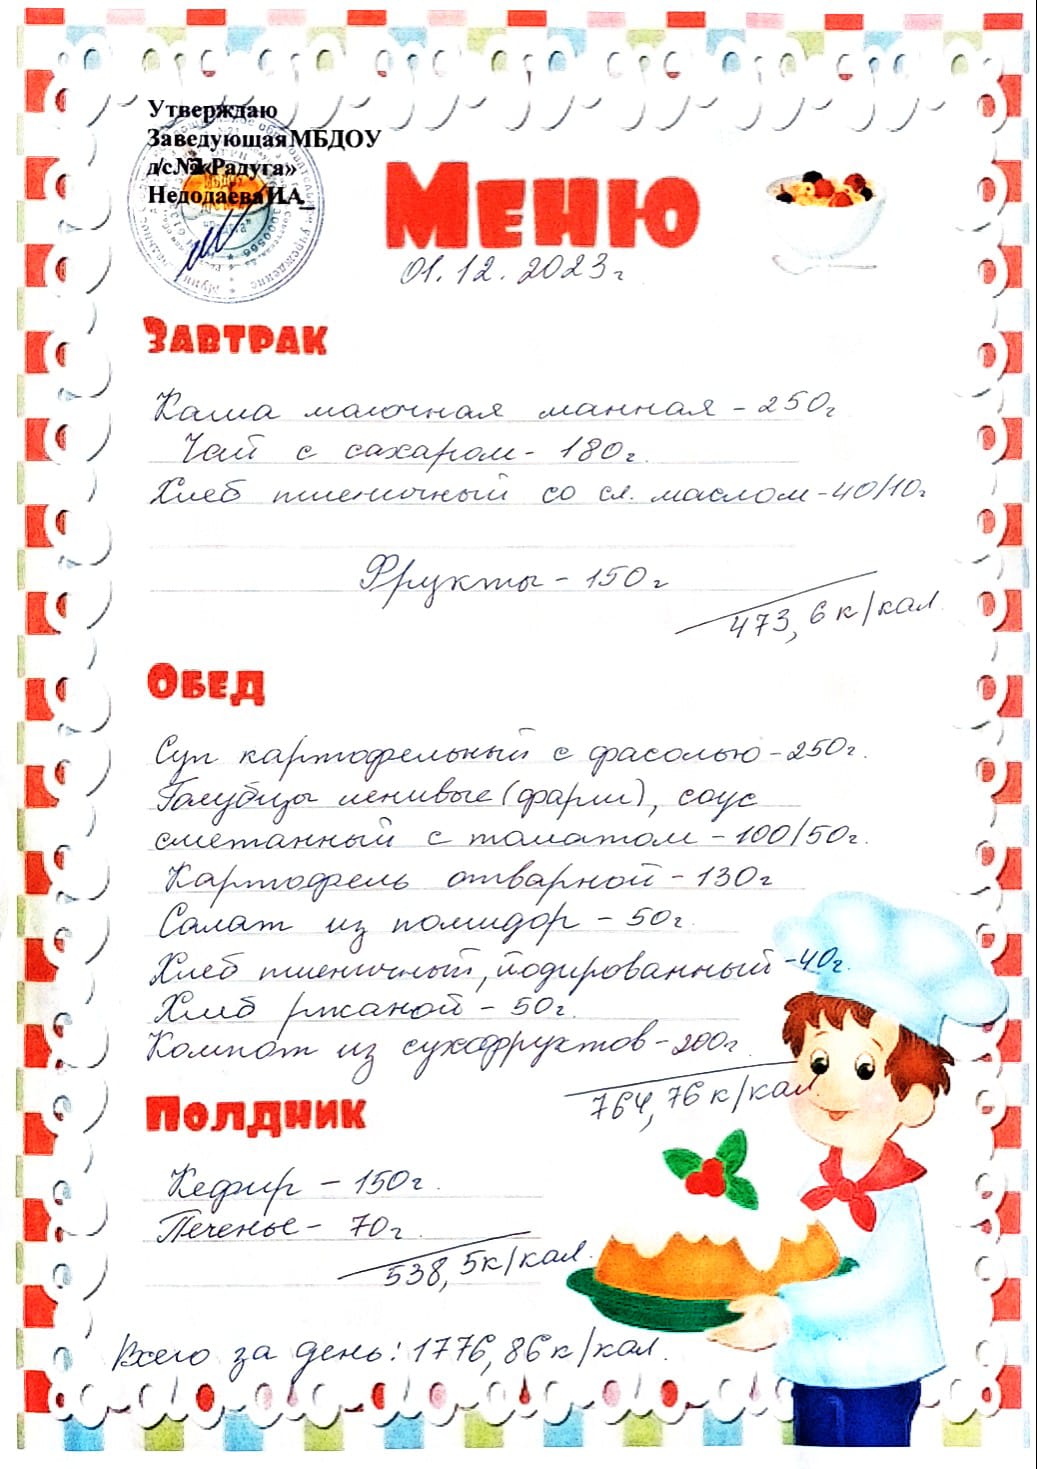 Утверждаю
Заведующая МБДОУ
д/с №2 «Радуга»
Недодаева И.А.
Меню
01.12.2023г
Завтрак
Каша молочная манная - 250г
Чай с сахаром - 180г.
Хлеб пшеничный со сл. маслом - 40/10г
Фрукты - 150г
473,6 к/кал
Обед
Суп картофельный с фасолью - 250г.
Голубцы ленивые (фарш), соус
сметанный с томатом - 100/50г.
Картофель отварной - 130г
Салат из помидор - 50г.
Хлеб пшеничный, йодированный - 40г.
Хлеб ржаной - 50г.
Компот из сухофруктов - 200г.
764,76 к/кал
Полдник
Кефир - 150г.
Печенье - 70г.
538,5 к/кал.
Всего за день: 1776,86 к/кал.